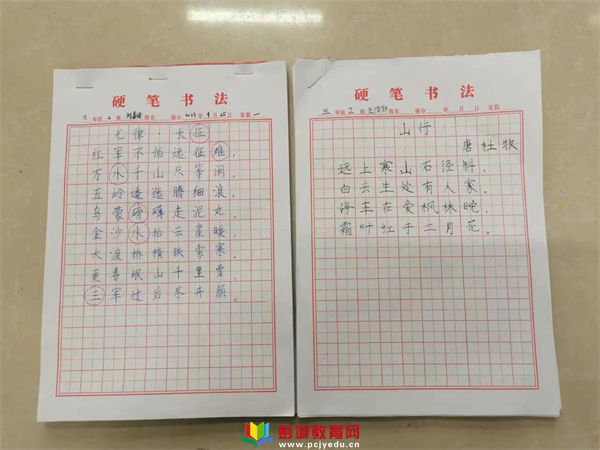 硬笔书法
六年级2班 姓名 得分 2023年9月25日 星期一
七律·长征
红军不怕远征难,
万水千山只等闲.
五岭逶迤腾细浪,
乌蒙磅礴走泥丸.
金沙水拍云崖暖,
大渡桥横铁索寒.
更喜岷山千里雪,
三军过后尽开颜.
硬笔书法
三年级2班 姓名 得分 年 月 日 星期
山行
唐 杜牧
远上寒山石径斜,
白云生处有人家.
停车坐爱枫林晚,
霜叶红于二月花.
彭城教育网
www.pcjyedu.cn